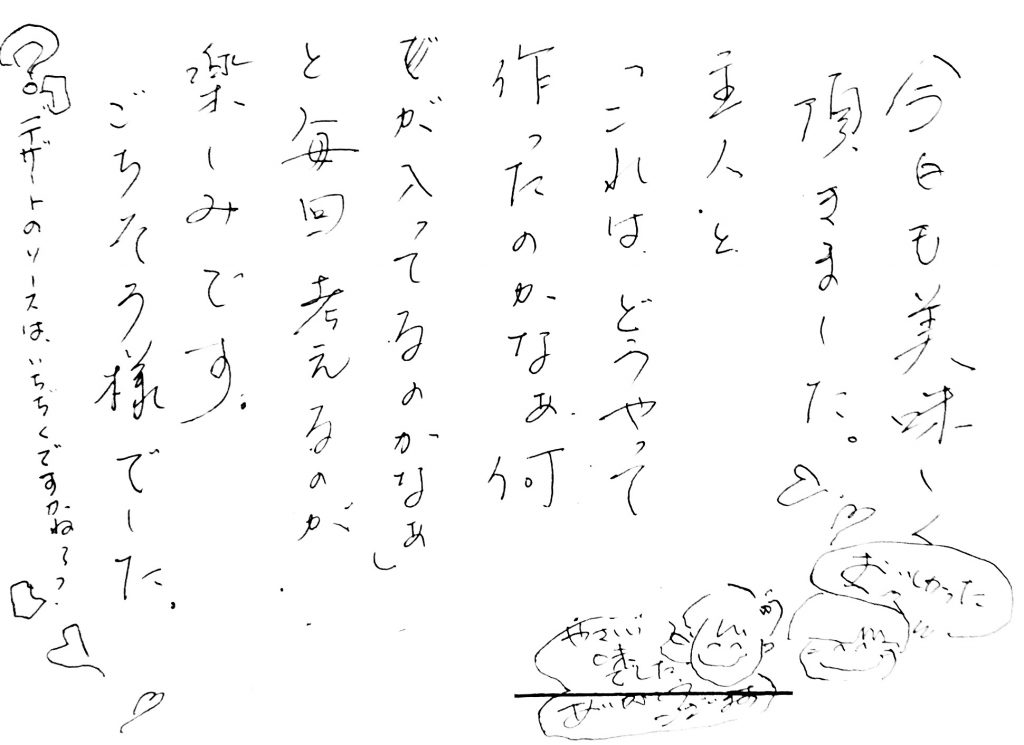 今日も美味しく
頂きました。
主人と
「これは、どうやって
作ったのかなぁ、何
ぜが入ってるのかなぁ」
と毎回考えるのが、
楽しみです。
ごちそう様でした。
デザートのソースは、いちぢくですかね〜?
おいしかった
やさしい
味
でした
ありがとう
ございます